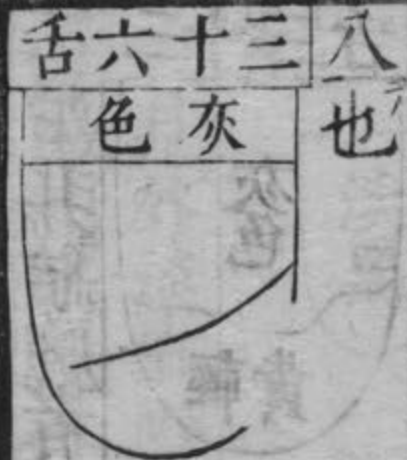 八
也
三十六舌
灰色